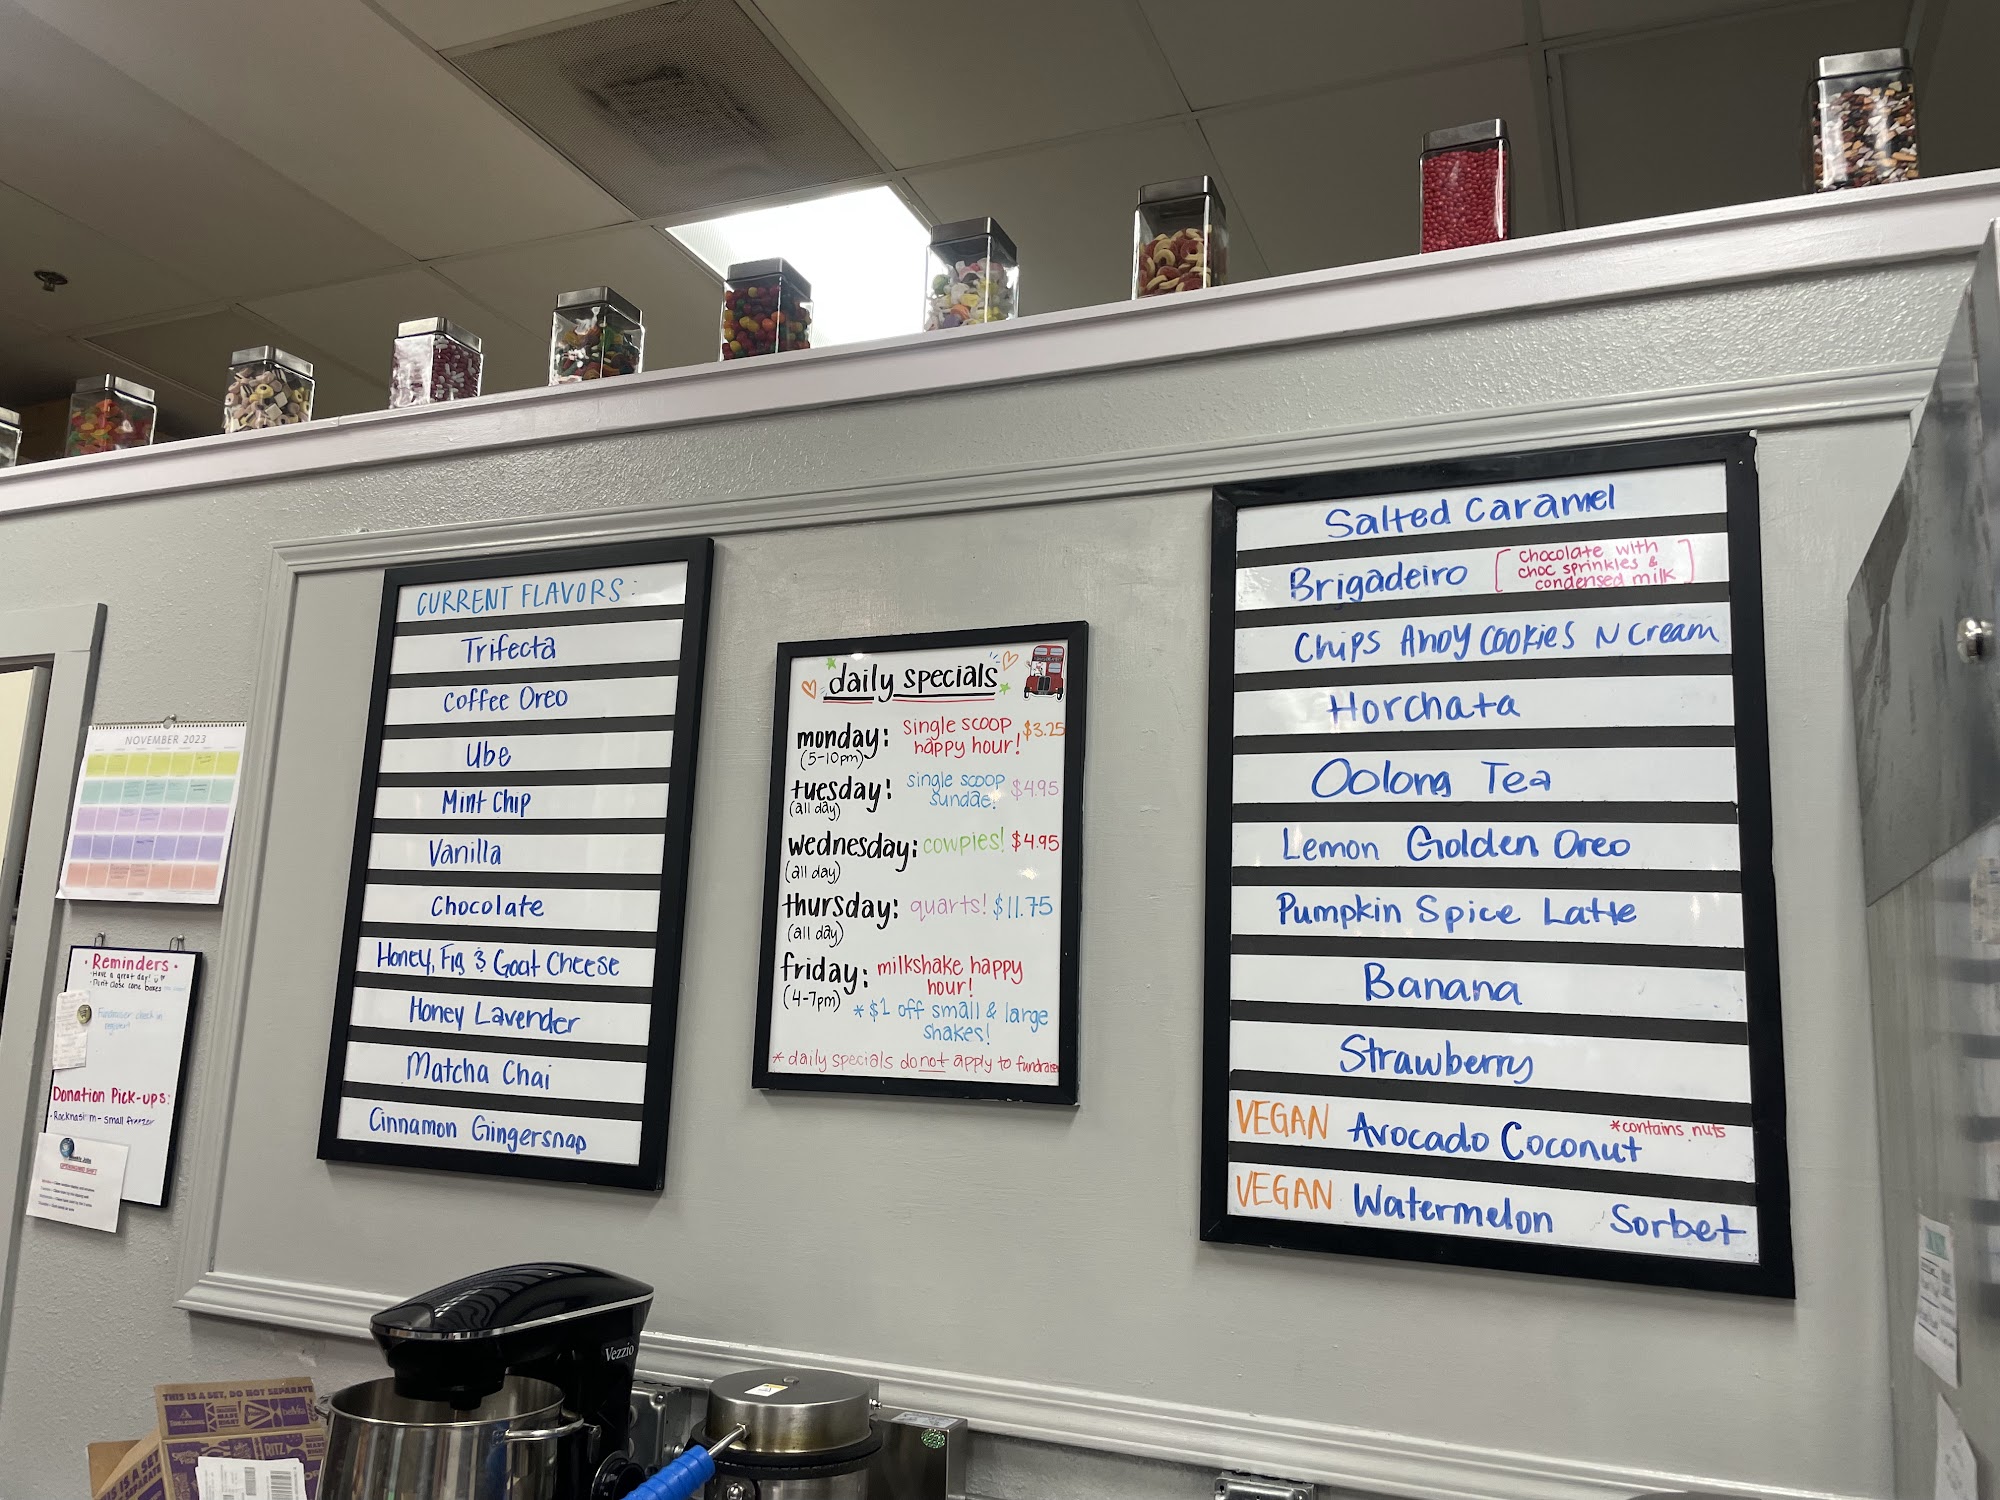 CURRENT FLAVORS:
Trifecta
Coffee Oreo
Ube
Mint Chip
Vanilla
Chocolate
Honey, Fig & Goat Cheese
Honey Lavender
Matcha Chai
Cinnamon Gingersnap
daily specials
monday: single scoop $3.25
(5-10pm) happy hour!
tuesday! single scoop $4.95
(all day) sundae!
wednesday: cowpies! $4.95
(all day)
thursday: quarts! $11.75
(all day)
friday: milkshake happy
(4-7pm) hour!
*$1 off small & large
shakes!
* daily specials do not apply to
Salted Caramel
Brigadeiro [chocolate with
choc sprinkles &
condensed milk]
Chips Ahoy Cookies N Cream
Horchata
Oolong Tea
Lemon Golden Oreo
Pumpkin Spice Latte
Banana
Strawberry
VEGAN Avocado Coconut *contains nuts
VEGAN Watermelon Sorbet
NOVEMBER 2023
• Reminders •
• Have a great day!
• Don't close cone boxes
Fundraiser check in
register!
Donation Pick-ups:
small freezer
OPENING SHIFT
Vezzio
THIS IS A SET, DO NOT SEPARATE
TOBLERONE
belVita
RITZ